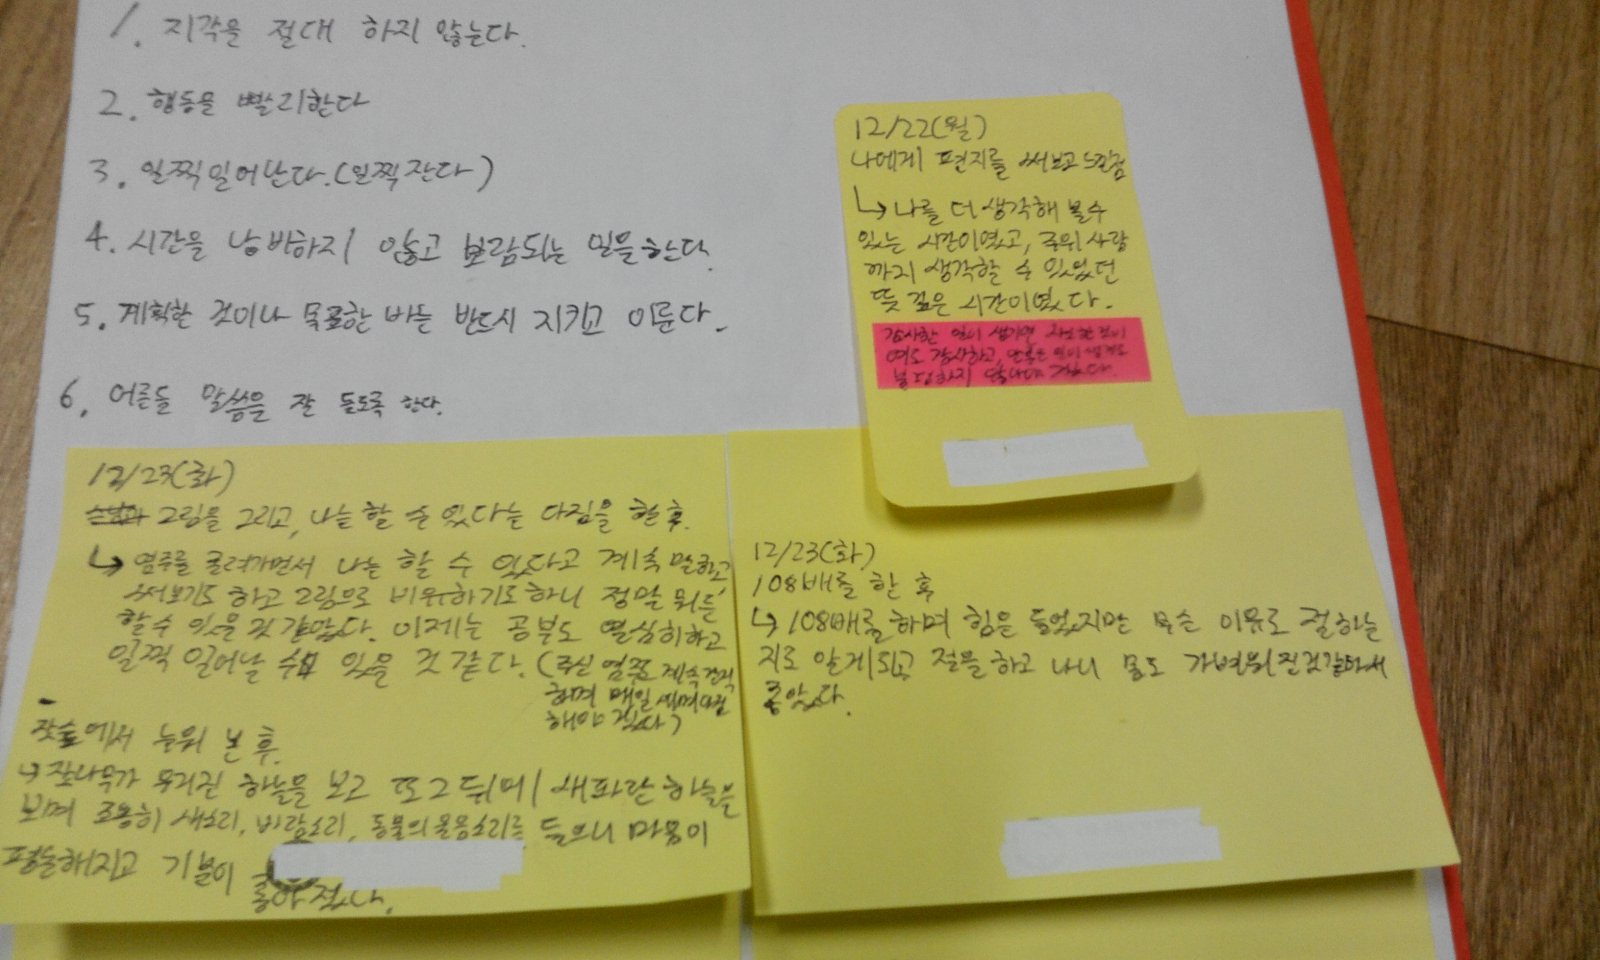 1. 지각을 절대 하지 않는다.
2. 행동을 빨리한다
3. 일찍일어난다.(일찍잔다)
4. 시간을 낭비하지 않고 보람되는 일을한다.
5. 계획한 것이나 목표한 바는 반드시 지키고 이룬다.
6. 어른들 말씀을 잘 듣도록 한다.
12/22(월)
나에게 편지를 써보고 느낀점
↳ 나를 더 생각해 볼수
있는 시간이였고, 주위 사람
까지 생각할 수 있었던
뜻 깊은 시간이였다.
감사한 일이 생기면 사소한것이
여도 감사하고, 안좋은 일이 생겨도
불평하지 않아야 겠다.
12/23(화)
그림을 그리고, 나는 할 수 있다는 다짐을 한 후.
↳ 염주를 굴려가면서 나는 할 수 있다고 계속 말하고
써보기도 하고 그림으로 비유하기도하니 정말 뭐든
할수 있을것 같았다. 이제는 공부도 열심히하고
일찍 일어날 수 있을 것 같다. (주신 염주도 계속
하며 매일
해야 겠다)
잣숲에서 누워 본 후.
↳ 잣나무가 우거진 하늘을 보고 또 그 뒤에 새파란 하늘을
보며 조용히 새소리, 바람소리, 동물의 울음소리를 들으니 마음이
평온해지고 기분이
좋아졌다.
12/23(화)
108배를 한 후
↳ 108배를 하며 힘은 들었지만 무슨 이유로 절하는
지도 알게되고 절을 하고 나니 몸도 가벼워진것같아서
좋았다.